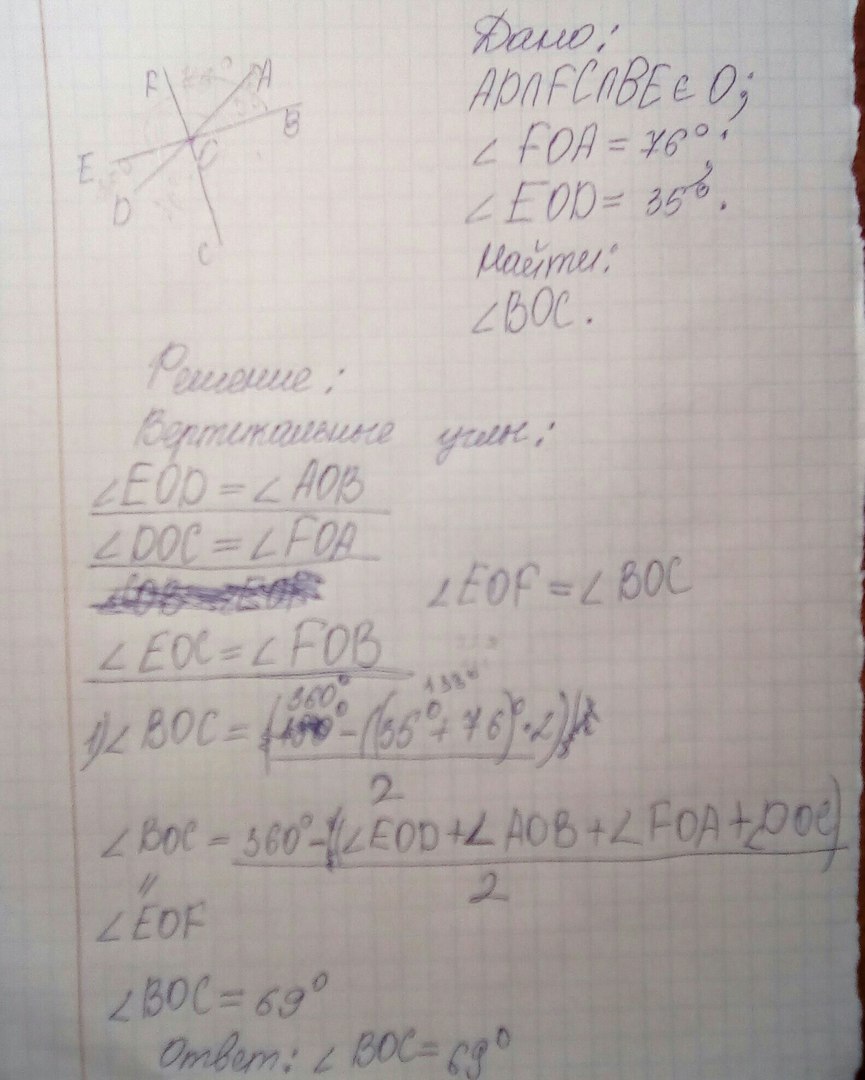 F
A
B
E
D
C
Дано:
AD∩FC∩BE ∈ O;
∠ FOA = 76°;
∠ EOD = 35°.
Найти:
∠BOC.
Решение:
Вертикальные углы:
∠EOD = ∠AOB
∠DOC = ∠FOA
∠EOF = ∠BOC
∠EOC = ∠FOB
1) ∠BOC = (360° - ((35° + 76)° · 2)) / 2
∠BOC = 360° - (∠EOD + ∠AOB + ∠FOA + ∠DOC) / 2
"
∠EOF
∠BOC = 69°
Ответ: ∠BOC = 69°